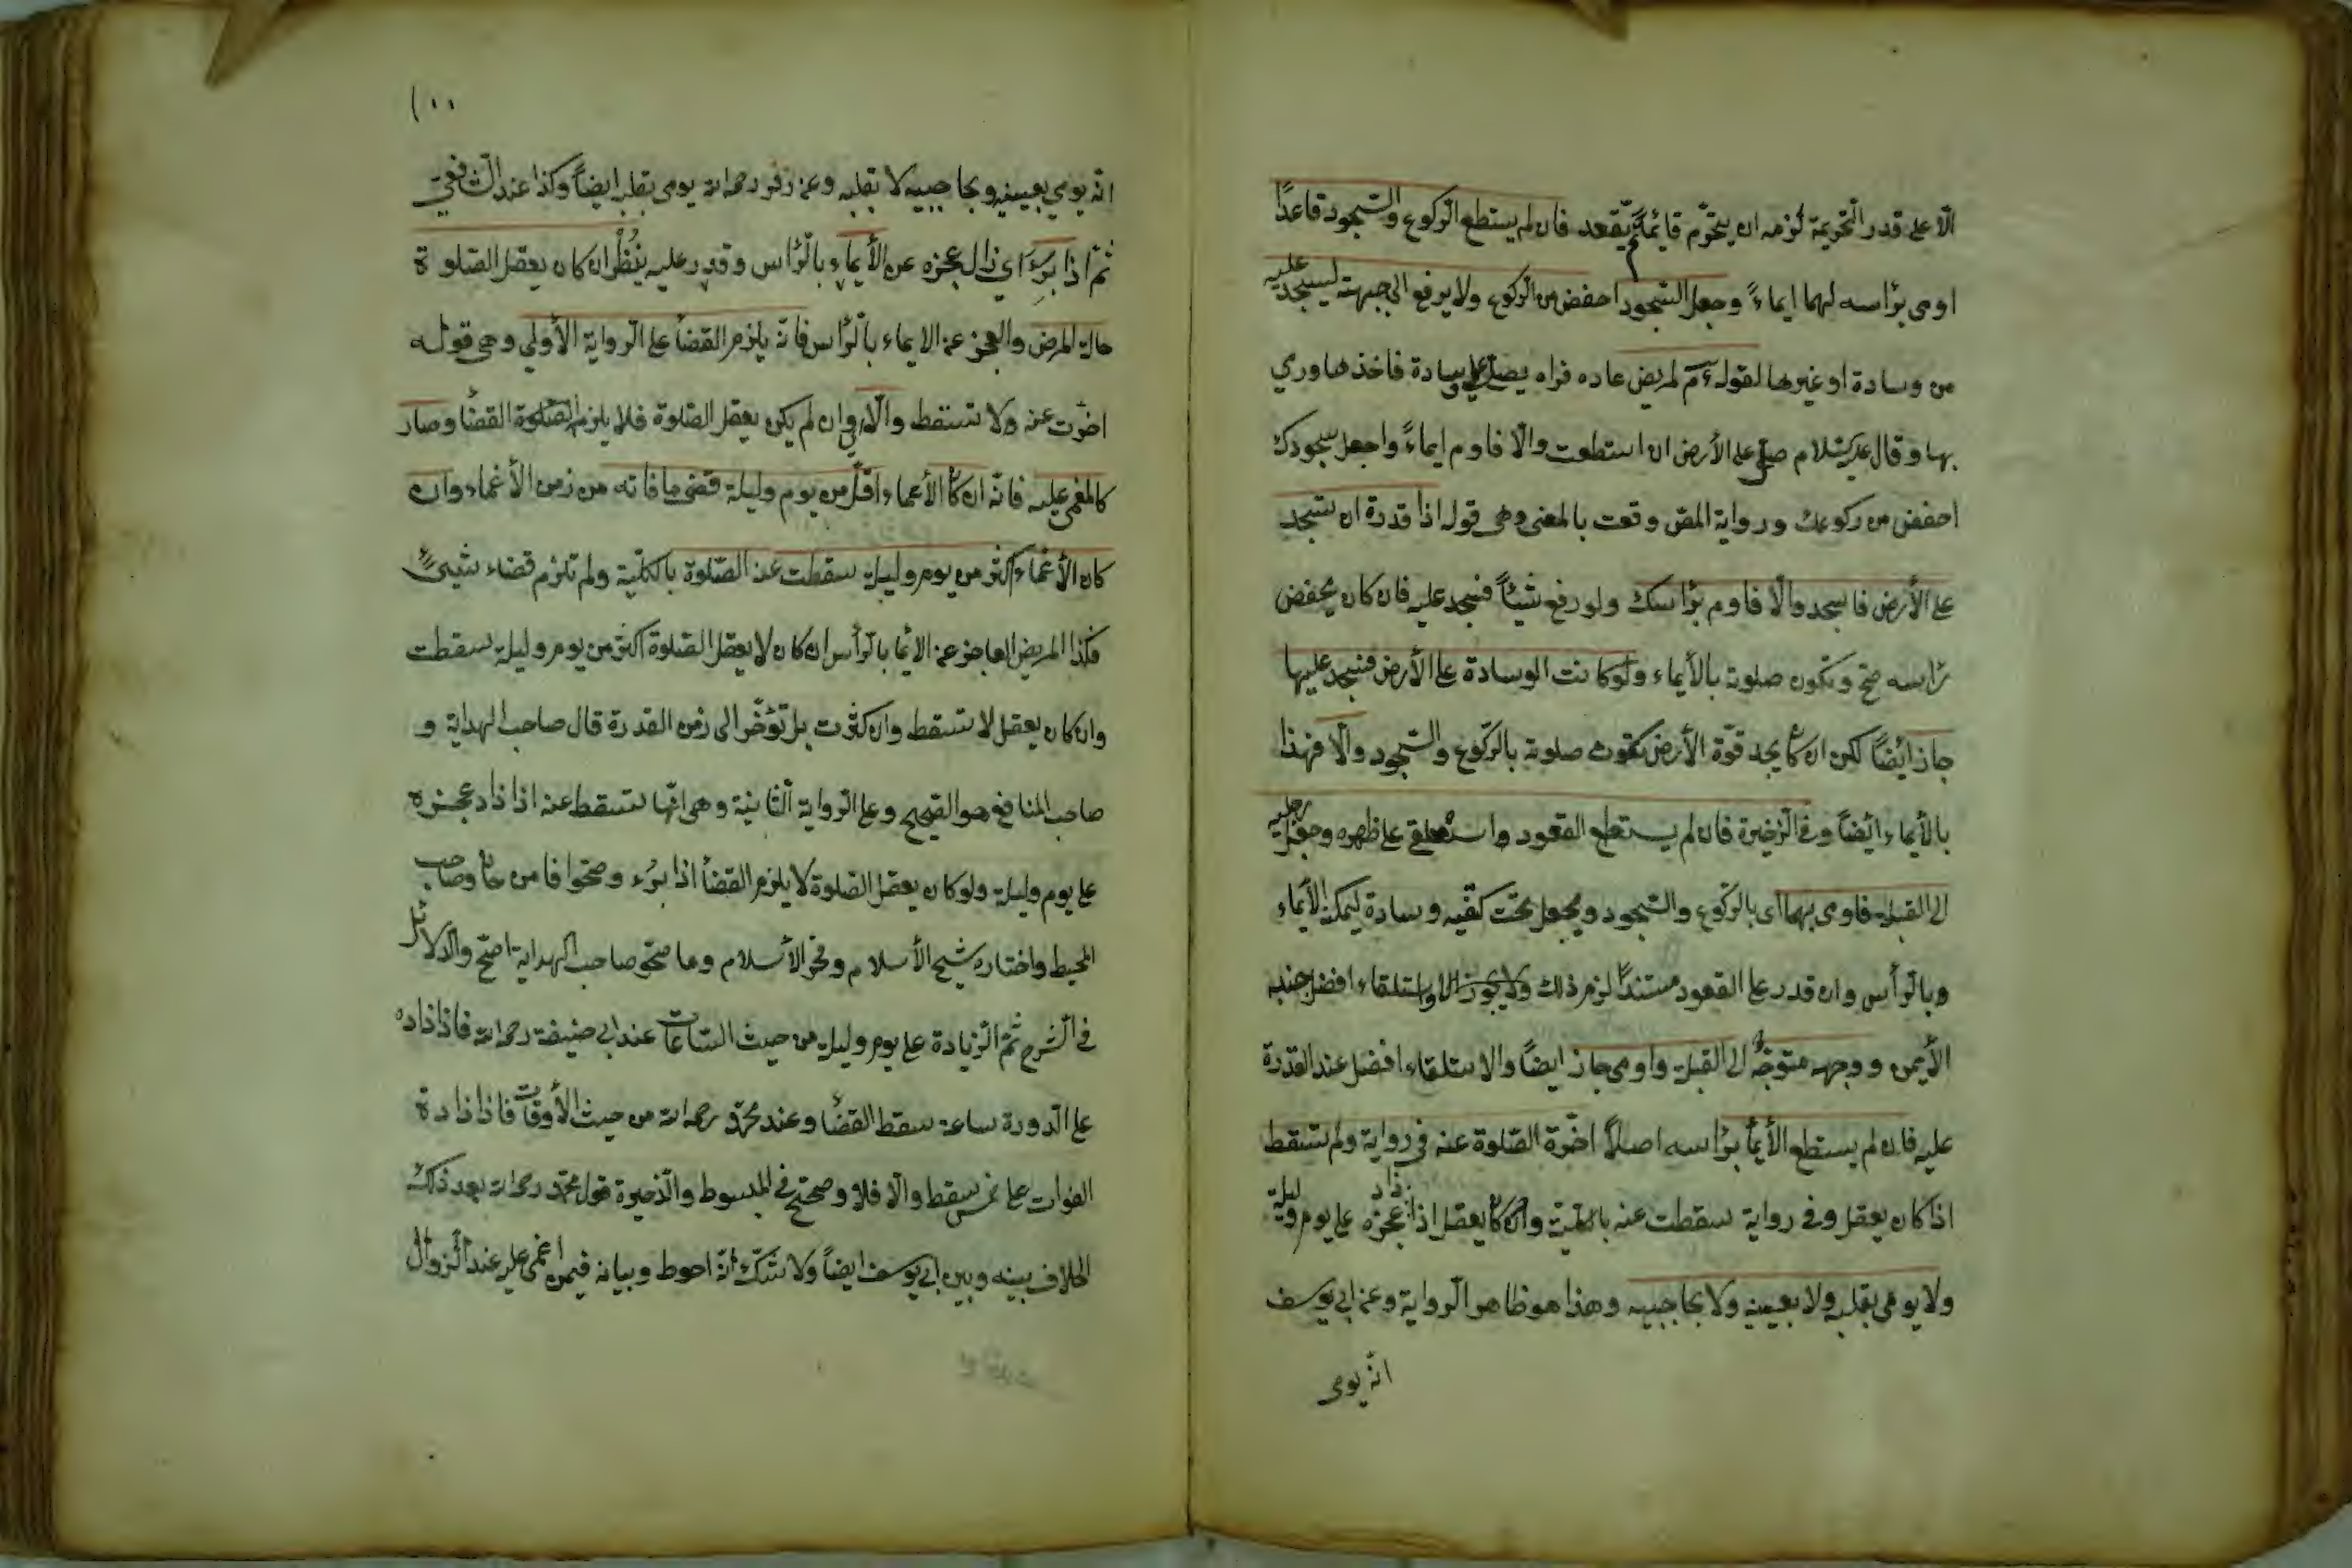 الّا على قدر التّحريمة لزمه ان يتحرّم قائمًا ثمّ يقعد فان لم يستطع الرّكوع والسّجود قاعدًا
اومى برٔاسه لهما ايماءً وجعل السّجود احفض من الرّكوع ولا يرفع الى جبهته ليسجد عليه
من وسادة او غيرها لقوله ءم لمريض عاده فراه يصلّى على وسادة فاخذها ورمي
بها وقال عليه السّلام صلّ على الأرض ان استطعت والّا فاوم ايماءً واجعل سجودك
احفض من ركوعك ورواية المص وقعت بالمعنى وهى قوله اذا قدرة ان تسجد
على الأرض فاسجد والّا فاوم برٔاسك ولو رفع شيئًا فسجد عليه فان كان يخفض
رٔاسه صحّ وتكون صلوته بالأيماء ولو كانت الوسادة على الأرض فسجد عليها
جاز ايضًا لكن ان كان يجد قوّة الأرض تكون صلوته بالرّكوع والسّجود والّا فهذا
بالأيماء ايضًا وفى الذّخيرة فان لم يستطع القعود واستلقى على ظهره وجعل رجليه
الى القبلة فاومى بهما اى بالرّكوع والسّجود ويجعل تحت كتفيه وسادة ليمكنه الأيماء
وبالرّأس وان قدر على القعود مستندًا لزمه ذلك ولا يجوز الاستلقاء افضل جنبه
الأيمن ووجهه متوجّه الى القبلة واومى جاز ايضًا والاستلقاء افضل عند القدرة
عليه فان لم يستطع الأيمأ برٔاسه اصلًا اخّرة الصّلوة عنه فى رواية ولم تسقط
اذا كان يعقل وفى رواية سقطت عنه بالكلّيّة وان كان يعقل اذا زاد عجزه على يوم وليلة
ولا يومى بقلبه ولا بعينيه ولا بحاجبيه وهذا هو ظاهر الرّواية وعن ابى يوسف
انّه يومى
١٠٠
انّه يومي بعينيه وبحاجبيه لا بقلبه وعن زفر رحمه الله يومى بقلبه ايضًا وكذا عند الشّافعيّ
ثمّ اذا برىء اي زال عجزه عن الأيماء بالرّٔاس وقدر عليه ينظر ان كان يعقل الصّلوة
حالة المرض والعجز عن الايماء بالرّٔاس فانّه يلزمه القضأ على الرّواية الأولى وهى قوله
اخّرت عنه ولا تسقط والّا اى وان لم يكن يعقل الصّلوة فلا يلزمه القضٔا وصار
كالمغمى عليه فانّه ان كان الأغماء اقلّ من يوم وليلة قضى ما فاته من زمن الأغماء وان
كان الأغماء اكثر من يوم وليلة سقطت عنه الصّلوة بالكلّية ولم تلزم قضاء شيئ
فكذا المريض العاجز عن الايمٔا بالرّأس ان كان لا يعقل الصّلوة اكثر من يوم وليلة سقطت
وان كان يعقل لا تسقط وان كثرت بل تؤخّر الى زمن القدرة قال صاحب الهداية و
صاحب المنافع هو الصّحيح وعلى الرّواية الثّانية وهى انّها تسقط عنه اذا زاد عجزه
على يوم وليلة ولو كان يعقل الصّلوة لا يلزمه القضأ اذا برىء وصحّحوا قاضى خان وصاحب
المحيط واختاره شيخ الأسلام وفخر الأسلام وما صحّحه صاحب الهداية اصحّ والدّلائل
فى الشّرح ثمّ الزّيادة على يوم وليلة من حيث السّاعات عند ابى حنيفة رحمه الله فاذا زاد
على الدّورة ساعة سقط القضٔا وعند محمّد رحمه الله من حيث الأوقات فاذا زادة
الفوات على خمس سقط والّا فلا وصحّح فى المبسوط والذّخيرة قول محمّد رحمه الله بعد ذكر
الخلاف بينه وبين ابى يوسف ايضًا ولا شكّ انّه احوط وبيانه فيمن اغمى عليه عند الزّوال